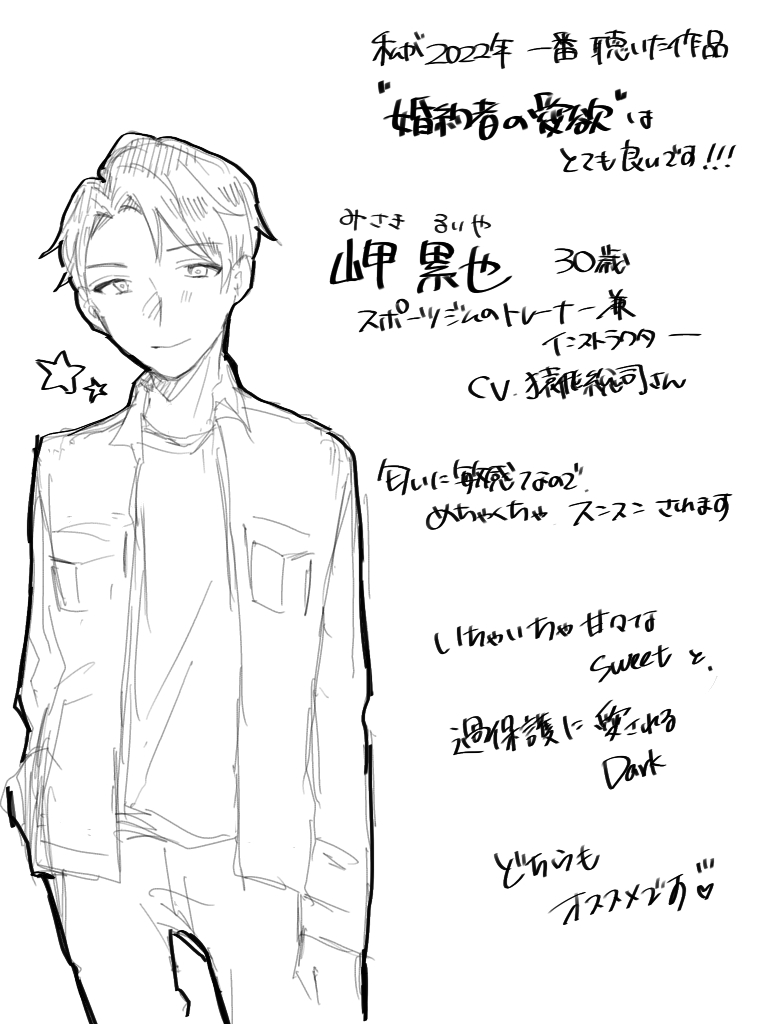 私が2022年 一番 聴いた作品
"婚約者の愛欲"は
とても良いです!!!
みさき るいや
岬 累也 30歳
スポーツジムのトレーナー兼
インストラクター
CV.猿飛総司さん
匂いに敏感なので
めちゃくちゃ スンスン されます
いちゃいちゃ甘々な
Sweet と、
過保護に愛される
Dark
どちらも
オススメです♡